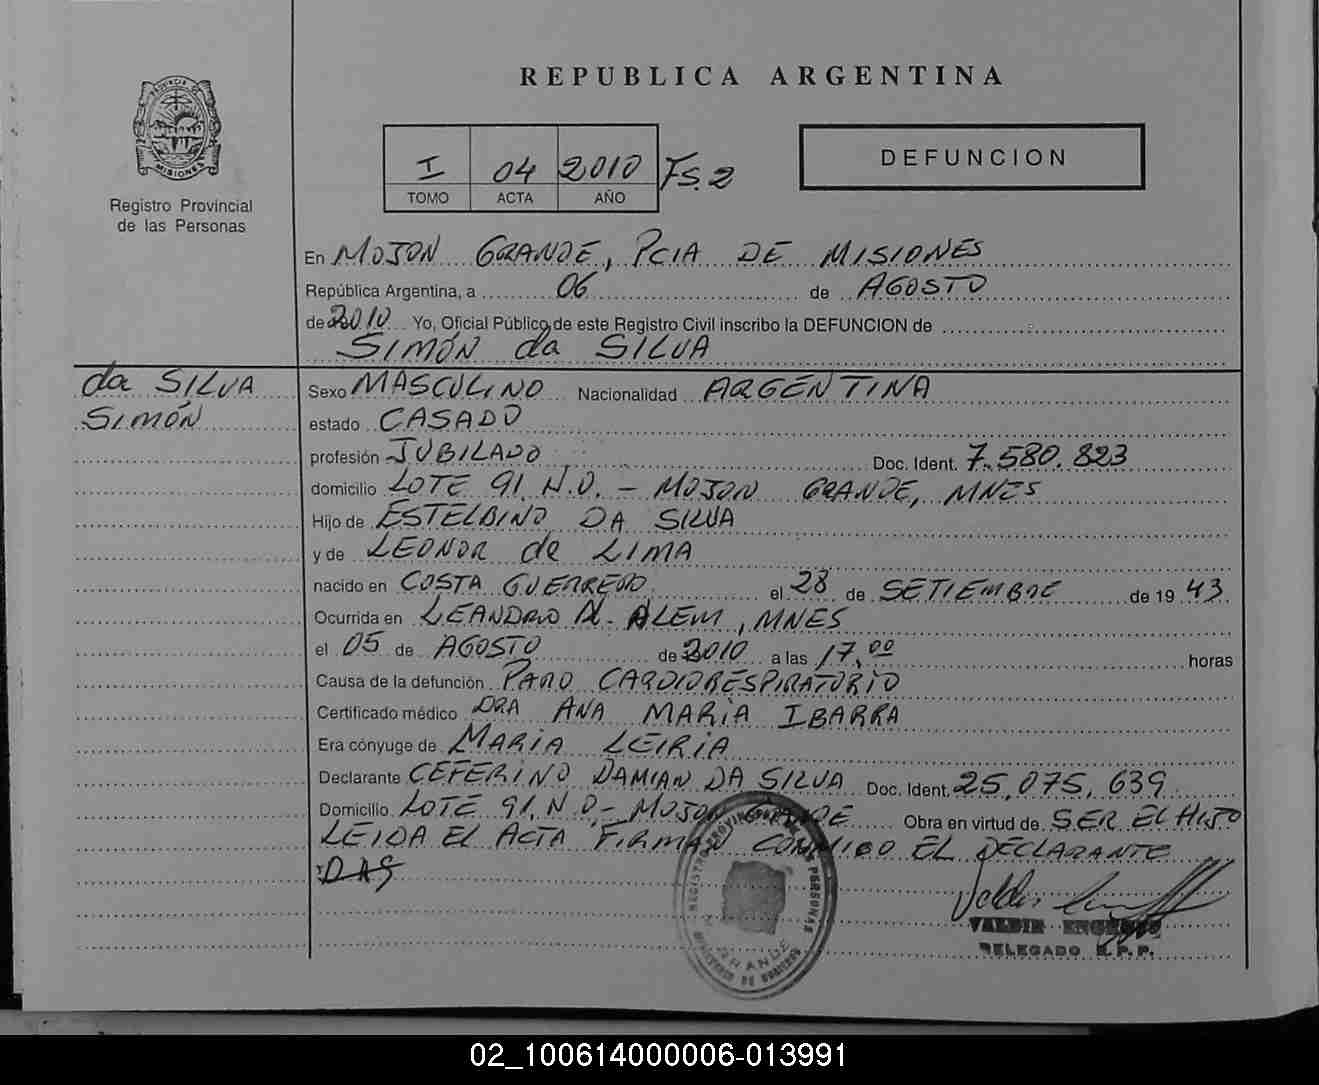 REPUBLICA ARGENTINA
PROVINCIA DE MISIONES
Registro Provincial
de las Personas
I 04 2010 Fs. 2
TOMO ACTA AÑO
DEFUNCION
En MOJON GRANDE, PCIA DE MISIONES
República Argentina, a 06 de AGOSTO
de 2010 Yo, Oficial Público de este Registro Civil inscribo la DEFUNCION de
SIMÓN da SILVA
da SILVA
SIMÓN
Sexo MASCULINO Nacionalidad ARGENTINA
estado CASADO
profesión JUBILADO Doc. Ident. 7.580.823
domicilio LOTE 91. N.D. - MOJON GRANDE, MNES
Hijo de ESTELBINO DA SILVA
y de LEONOR de LIMA
nacido en COSTA GUERRERO el 28 de SETIEMBRE de 19 43
Ocurrida en LEANDRO N. ALEM, MNES
el 05 de AGOSTO de 2010 a las 17,00 horas
Causa de la defunción PARO CARDIORESPIRATORIO
Certificado médico DRA ANA MARIA IBARRA
Era cónyuge de MARIA LEIRIA
Declarante CEFERINO DAMIAN DA SILVA Doc. Ident. 25,075,639
Domicilio LOTE 91, N.D.- MOJON GRANDE Obra en virtud de SER EL HIJO
LEIDA EL ACTA FIRMAN CONMIGO EL DECLARANTE
REGISTRO PROVINCIAL DE LAS PERSONAS
GRANDE
MINISTERIO DE GOBIERNO
VALDIR
DELEGADO R.P.P.
02_100614000006-013991